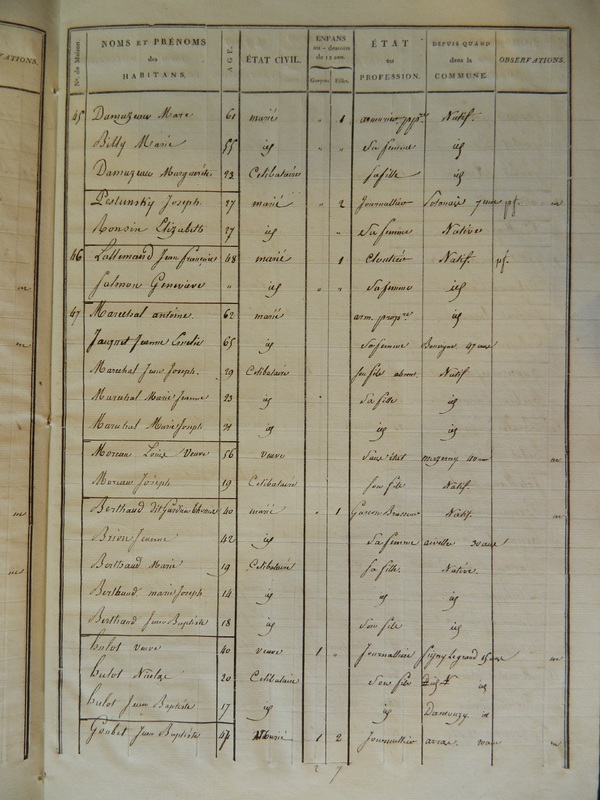 VATIONS.
Nos. de Maison. NOMS ET PRÉNOMS des HABITANS. AGE. ÉTAT CIVIL. ENFANS au-dessous de 12 ans. Garçons Filles. ÉTAT ou PROFESSION. DEPUIS QUAND dans la COMMUNE. OBSERVATIONS.
45 Damuzeaux Marc 61 marié " 1 Natif
Billy Marie 55 id " " Sa femme id
Damuzeaux Marguerite 23 Celibataire sa fille id
Joseph 37 marié " 2 Journallier Polonais
Ronsin Elizabeth 37 id " Sa femme Native
46 Lallemand Jean François 48 marié 1 Cloutier Natif
Salmon Geneviève " id " " Sa femme id
47 Marechal antoine 62 marié arm. propre id
Jeanne 65 id Sa femme 47 ans
Marechal Jean Joseph 29 Celibataire son fils absent Natif
Marechal Marie Jeanne 23 id Sa fille id
Marechal Marie Joseph 21 id id id
Moreau Louis Veuve 56 veuve Sans état 40 ans
Moreau Joseph 19 Celibataire son fils Natif
Berthaud dit 40 marié " 1 Garcon Brasseur Natif
Brion Jeanne 42 id Sa femme aivelle 30 ans
Berthaud Marie 19 Celibataire sa fille Native
Berthaud marie Joseph 14 id id id
Berthaud Jean Baptiste 18 id Son fils id
hulot veuve 40 veuve 1 " Journalliere Signy Legrand
hulot Nicolas 20 Celibataire Son fils id
hulot Jean Baptiste 17 id id Damouzy id
Goubet Jean Baptiste Marié 1 2 Journallier
2 7